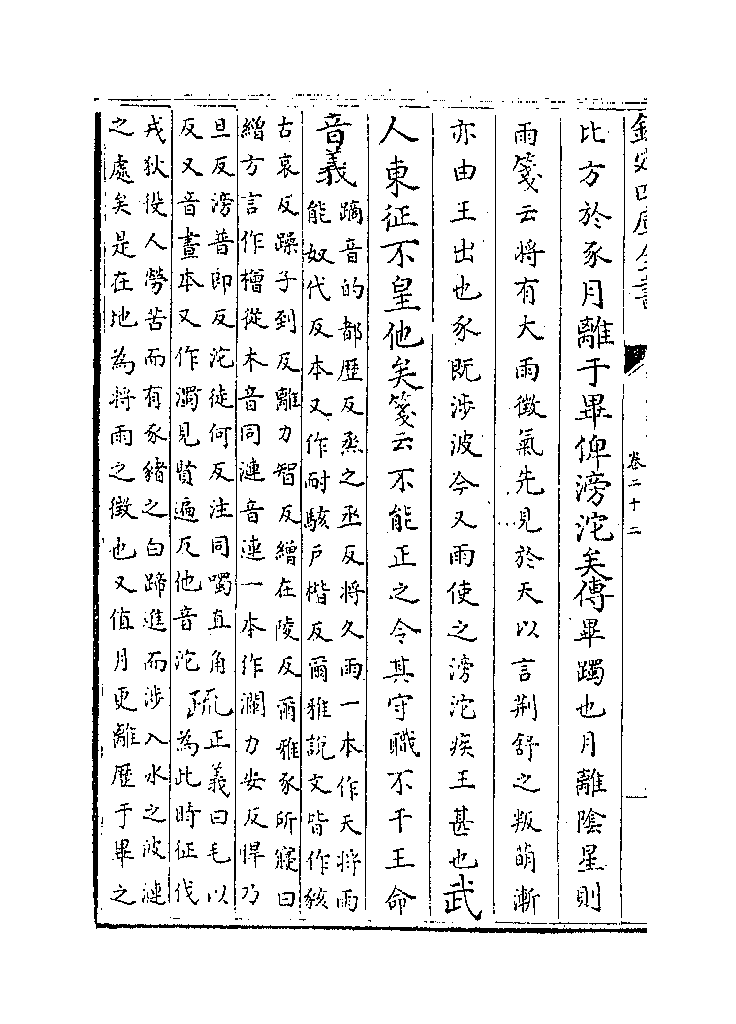 欽定四庫全書 卷二十二
比方於豕月離于畢俾滂沱矣傳畢躅也月離陰星則
雨箋云將有大雨徵氣先見於天以言荆舒之叛萌漸
亦由王出也豕既涉波今又雨使之滂沱疾王甚也武
人東征不皇他矣箋云不能正之令其守職不干王命
音義蹢音的都歷反烝之丞反將久雨一本作天將雨
能奴代反本又作耐駭戶楷反爾雅說文皆作豥
古哀反躁子到反離力智反繒在陵反爾雅豕所寢曰
繒方言作橧從木音同漣音連一本作瀾力安反悍乃
旦反滂普郎反沱徒何反注同噣直角
反又音晝本又作濁見賢遍反他音沱
疏正義曰毛以
為此時征伐
戎狄役人勞苦而有豕豬之白蹄進而涉入水之波漣
之處矣是在地為將雨之徵也又值月更離歷于畢之